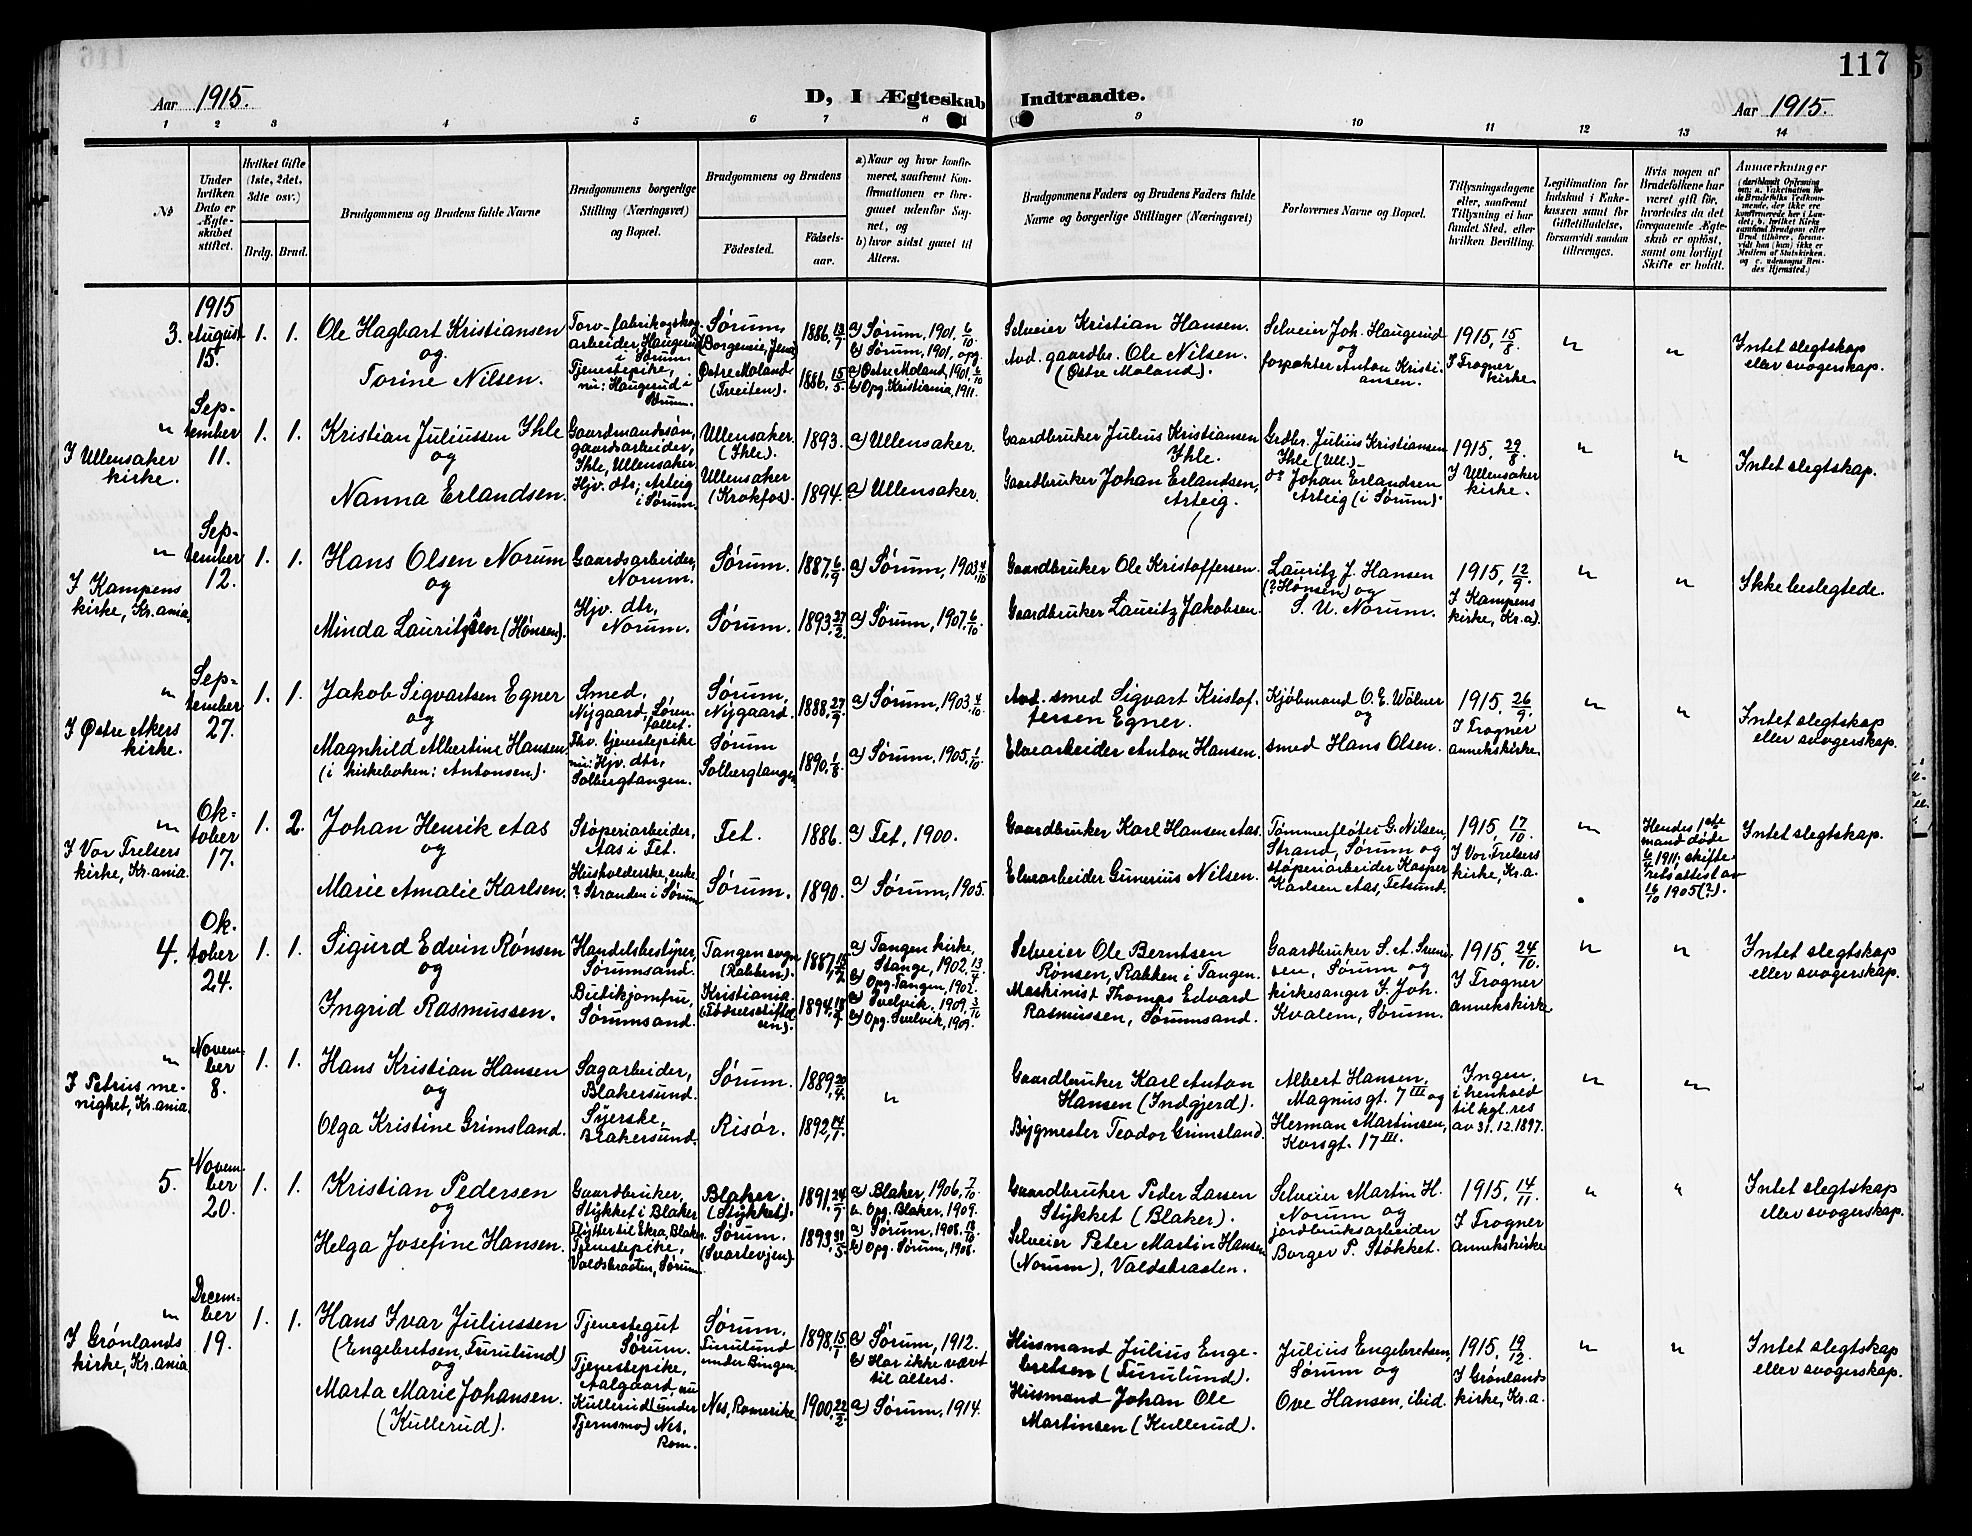 117
Aar 1915.
D, I Ægteskab Indtraadte.
Aar 1915.
1 2 3 4 5 6 7 8 9 10 11 12 13 14
No
Under hvilken Dato er Ægteskabet stiftet.
Hvilket Gifte (1ste, 2det, 3die osv.)
Brdg. Brud.
Brudgommens og Brudens fulde Navne
Brudgommens borgerlige Stilling (Næringsvei) og Bopæl.
Brudgommens og Brudens
Födested.
Födselsaar.
a) Naar og hvor konfirmeret, saafremt Konfirmationen er foregaaet udenfor Sognet, og
b) hvor sidst gaaet til Alters.
Brudgommens Faders og Brudens Faders fulde Navne og borgerlige Stillinger (Næringsvei)
Forlovernes Navne og Bopæl.
Tillysningsdagene eller, saafremt Tillysning ei har fundet Sted, efter hvilken Bevilling.
Legitimation for Indskud i Enkekassen samt for Giftetilladelse, forsaavidt saadan tiltrænges.
Hvis nogen af Brudefolkene har været gift før, hvorledes da det foregaaende Ægteskab er opløst, samt om lovligt Skifte er holdt.
Anmærkninger
3. 1915 August 15. 1. 1.
Ole Hagbart Kristiansen
og
Torine Nilsen.
Torv-fabrik og skogarbeider, Haugerud i Sørum.
Tjenestepike, nu: Haugerud i Sørum.
Sørum,
Østre Moland (Tveiten).
1886, 13/7
1886, 15/5
a) Sørum, 1901, 6/10
b) Sørum, 1901, opg.
a) Østre Moland, 1901, 6/10
b) Opg. Kristiania, 1911.
Selveier Kristian Hansen.
Avd. gaardbr. Ole Nilsen.
(Østre Moland).
Selveier Joh. Haugerud
og
forpakter Anton Kristiansen.
1915, 15/8.
I Frogner kirke.
" "
Intet slegtskap eller svogerskap.
" I Ullensaker kirke.
September 11. 1. 1.
Kristian Juliussen Ihle
og
Nanna Erlandsen.
Gaardmandssøn, gaardsarbeider, Ihle, Ullensaker.
Hjv. dtr; Arteig i Sørum.
Ullensaker (Ihle).
Ullensaker (Krokfos).
1893.
1894.
a) Ullensaker.
a) Ullensaker.
Gaardbruker Julius Kristiansen Ihle.
Gaardbruker Johan Erlandsen, Arteig.
Grdbr. Julius Kristiansen Ihle (Ull.)
do Johan Erlandsen Arteig (i Sørum)
1915, 29/8
I Ullensaker kirke.
" "
Intet slegtskap.
" I Kampens kirke, Kr.ania.
September 12. 1. 1.
Hans Olsen Norum
og
Minda Lauritzsen (Hønsen).
Gaardsarbeider, Norum.
Hjv. dtr, Norum.
Sørum.
Sørum.
1887, 6/9
1893, 27/2
a) Sørum, 1903, 4/10
a) Sørum, 1907, 6/10
Gaardbruker Ole Kristoffersen.
Gaardbruker Lauritz Jakobsen.
Lauritz J. Hansen
(? Hønsen) og
S. U. Norum.
1915, 12/9.
I Kampens kirke, Kr.a).
" "
Ikke beslegtede.
" I Østre Akers kirke.
September 27. 1. 1.
Jakob Sigvartsen Egner
og
Magnhild Albertine Hansen
(i kirkeboken: Antonsen).
Smed, Nygaard, Sørenfallet.
Fhv. tjenestepike nu: Hjv. dtr, Solbergtangen.
Sørum, Nygaard.
Sørum Solbergtangen
1888, 27/9
1890, 1/8
a) Sørum, 1903, 4/10
a) Sørum, 1905, 1/10
Avd. smed Sigvart Kristoffersen Egner.
Elvearbeider Anton Hansen.
Kjøbmand O. E. Wølner
og
smed Hans Olsen.
1915, 26/9.
I Frogner annekskirke.
" "
Intet slegtskap eller svogerskap.
" I Vor Frelsers kirke, Kr.ania.
Oktober 17. 1. 2.
Johan Henrik Aas
og
Marie Amalie Karlsen.
Støperiarbeider, Aas i Fet.
Husholderske, enke ? Stranden i Sørum
Fet.
Sørum.
1886
1890.
a) Fet, 1900.
a) Sørum, 1905.
Gaardbruker Karl Hansen Aas.
Elvearbeider Gunerius Nilsen.
Tømmerfløter G. Nilsen, Strand, Sørum og
støperiarbeider Kasper Karlsen Aas, Fetsund.
1915, 17/10.
I Vor Frelsers kirke, Kr.a.
"
Hendes 1ste mand døde 6/4 1911; skifteretsattest av 16/10 1905(?).
Intet slegtskap.
4. Oktober 24. 1. 1.
Sigurd Edvin Rønsen
og
Ingrid Rasmussen.
Handelsbestyrer, Sørumsand.
Butikjomfru, Sørumsand.
Tangen sogn (Rakken).
Kristiania (Fødselsstiftelsen).
1887, 15/2
1894, 18/7
a) Tangen kirke, Stange, 1902, 13/4
b) Opg. Tangen, 1902.
a) Svelvik. 1909, 3/10
b) Opg. Svelvik, 1909.
Selveier Ole Berntsen Rønsen, Rakken i Tangen.
Maskinist Thomas Edvard Rasmussen, Sørumsand.
Gaardbruker S. A. Svendsen, Sørum og
kirkesanger J. Joh. Kvalem, Sørum.
1915, 24/10.
I Frogner annekskirke
" "
Intet slegtskap eller svogerskap.
" I Petrus menighet, Kr.ania.
November 8. 1. 1.
Hans Kristian Hansen
og
Olga Kristine Grimsland.
Sagarbeider, Blakersund.
Syerske, Blakersund.
Sørum.
Risør.
1889, 20/4.
1892, 14/1
"
Gaardbruker Karl Anton Hansen (Indgjerd).
Bygmester Teodor Grimsland.
Albert Hansen, Magnusgt. 7 III og
Herman Martinsen, Korsgt. 17 III.
Ingen, i henhold til kgl. res av 31.12.1897.
" "
5. November 20. 1. 1.
Kristian Pedersen
og
Helga Josefine Hansen.
Gaardbruker, Stykket i Blaker
Flytter til Ekra, Blaker.
Tjenestepike, Valdsbraaten, Sørum
Blaker. (Stykket).
Sørum. (Svartevjen)
1891, 24/7
1893, 30/5
a) Blaker, 1906, 7/10
b. Opg. Blaker, 1909.
a) Sørum, 1908. 18/10
b) Opg. Sørum, 1908.
Gaardbruker Peder Larsen Stykket (Blaker).
Selveier Peter Martin Hansen (Norum), Valdsbraaten.
Selveier Martin H. Norum og
jordbruksarbeider Borger P. Støkket.
1915, 14/11.
I Frogner annekskirke
" "
Intet slegtskap eller svogerskap.
" I Grønlands kirke, Kr.ania
December 19. 1. 1.
Hans Ivar Juliussen
(Engebretsen, Furulund)
og
Marta Marie Johansen.
(Kullerud).
Tjenestegut Sørum.
Tjenestepike, Aalgaard, nu Kullerud (under Tjernsmo) Nes, Rom.
Sørum, Furulund under Bingen
Nes, Romerike
1898, 15/1
1900, 22/2
a) Sørum, 1912.
b) Har ikke været til alters.
a) Sørum, 1914.
Husmand Julius Engebretsen (Furulund).
Husmand Johan Ole Martinsen (Kullerud).
Julius Engebretsen, Sørum og
Ove Hansen, ibid.
1915, 19/12.
I Grønlands kirke, Kr.a.
" "
Intet slegtskap eller svogerskap.